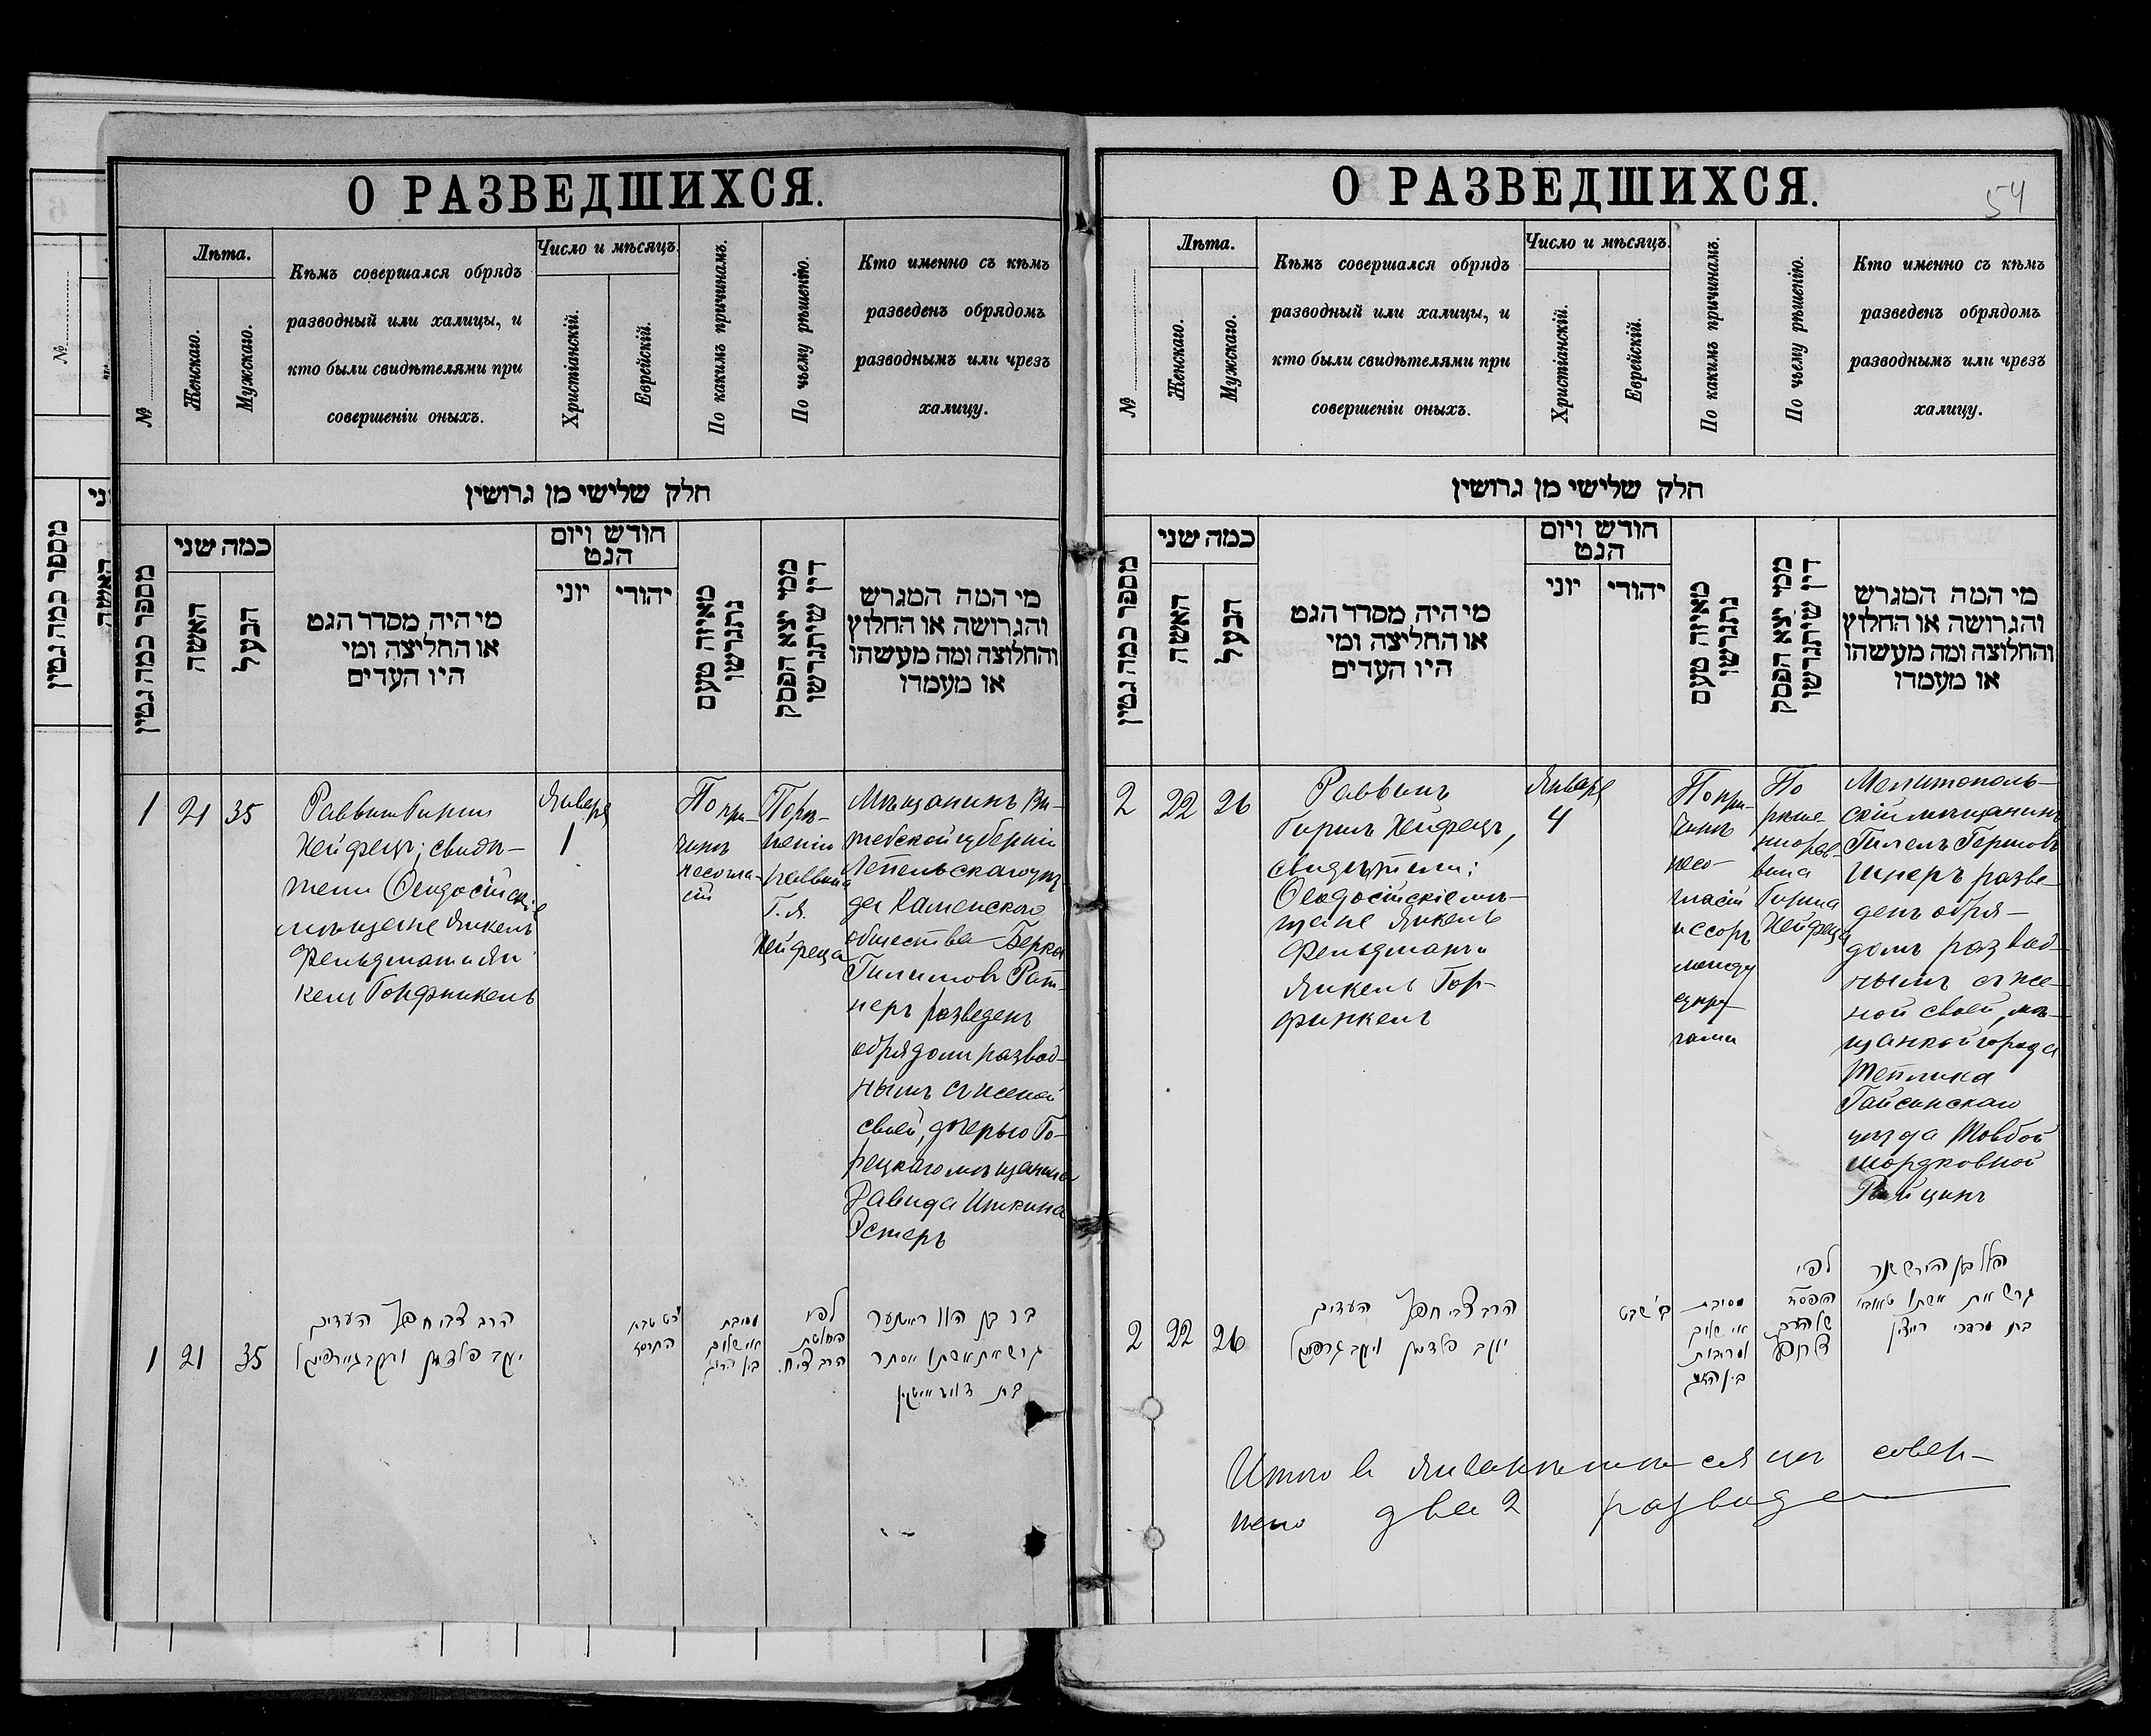 О РАЗВЕДШИХСЯ.
№
Лѣта.
Женскаго.
Мужскаго.
Кѣмъ совершался обрядъ
разводный или халицы, и
кто были свидѣтелями при
совершеніи оныхъ.
Число и мѣсяцъ.
Христіанскій.
Еврейскій.
По какимъ причинамъ.
По чьему рѣшенію.
Кто именно съ кѣмъ
разведенъ обрядомъ
разводнымъ или чрезъ
халицу.
חלק שלישי מן גרושין
מספר כמה גטין
כמה שני
האשה
הבעל
מי היה מסדר הגט
או החליצה ומי
היו העדים
חודש ויום
הגט
יוני
יהודי
מאיזה טעם
נתגרשו
ממי יצא הפסק
דין שיתגרשו
מי המה המגרש
והגרושה או החלוץ
והחלוצה ומה מעשהו
או מעמדו
1
21
35
Раввинъ Гиршъ
Хейфецъ; свидѣ-
тели Ѳеодосійскіе
мѣщане Янкель
Фельдманъ и Ян-
кель Горфинкель
Января
1
По при-
чинѣ
несогла-
сій
По рѣ-
шенію
раввина
Г. Я.
Хейфеца
Мѣщанинъ Ви-
тебской губерніи
Лепельскаго уѣз-
да Каменскаго
общества Берка
Гилимовъ Рат-
неръ разведенъ
обрядомъ развод-
нымъ съ женой
своей, дочерью Го-
рецкаго мѣщанина
Давида Иткина
Эстеръ
1
21
35
הרב צבי חפץ העדים
יעקב פלדמן ויעקב גורפינקל
טבת
מסיבת
אי שלום
בין הזוג
לפי
החלטת
הרב צ״ח.
גרש את אשתו אסתר
בת דוד איטקין
О РАЗВЕДШИХСЯ.
54
№
Лѣта.
Женскаго.
Мужскаго.
Кѣмъ совершался обрядъ
разводный или халицы, и
кто были свидѣтелями при
совершеніи оныхъ.
Число и мѣсяцъ.
Христіанскій.
Еврейскій.
По какимъ причинамъ.
По чьему рѣшенію.
Кто именно съ кѣмъ
разведенъ обрядомъ
разводнымъ или чрезъ
халицу.
חלק שלישי מן גרושין
מספר כמה גטין
כמה שני
האשה
הבעל
מי היה מסדר הגט
או החליצה ומי
היו העדים
חודש ויום
הגט
יוני
יהודי
מאיזה טעם
נתגרשו
ממי יצא הפסק
דין שיתגרשו
מי המה המגרש
והגרושה או החלוץ
והחלוצה ומה מעשהו
או מעמדו
2
22
26
Раввинъ
Гиршъ Хейфецъ,
свидѣтели:
Ѳеодосійскіе мѣ-
щане Янкель
Фельдманъ и
Янкель Гор-
финкель
Января
4
По при-
чинѣ
несо-
гласій
и ссоръ
между
супру-
гами
По
рѣше-
нію рав-
вина
Гирша
Хейфеца
Мелитополь-
скій мѣщанинъ
Гилель Гершовъ
Шнеръ разве-
денъ обря-
домъ развод-
нымъ съ же-
ной своей, мѣ-
щанкой города
Теплика
Гайсинскаго
уѣзда Товбой
Мордковной
Райцинъ
2
22
26
הרב צבי חפץ העדים
יעקב פלדמן ויעקב גורפינקל
שבט
מסיבת
אי שלום
ומריבות
בין הזוג
לפי
הפסק
של הרב
צ׳ חפץ
הלל בן הירש שנר
גרש את אשתו טאובי
בת מרדכי רייצין
Итого въ январѣ мѣсяцѣ совер-
шено два 2 развода